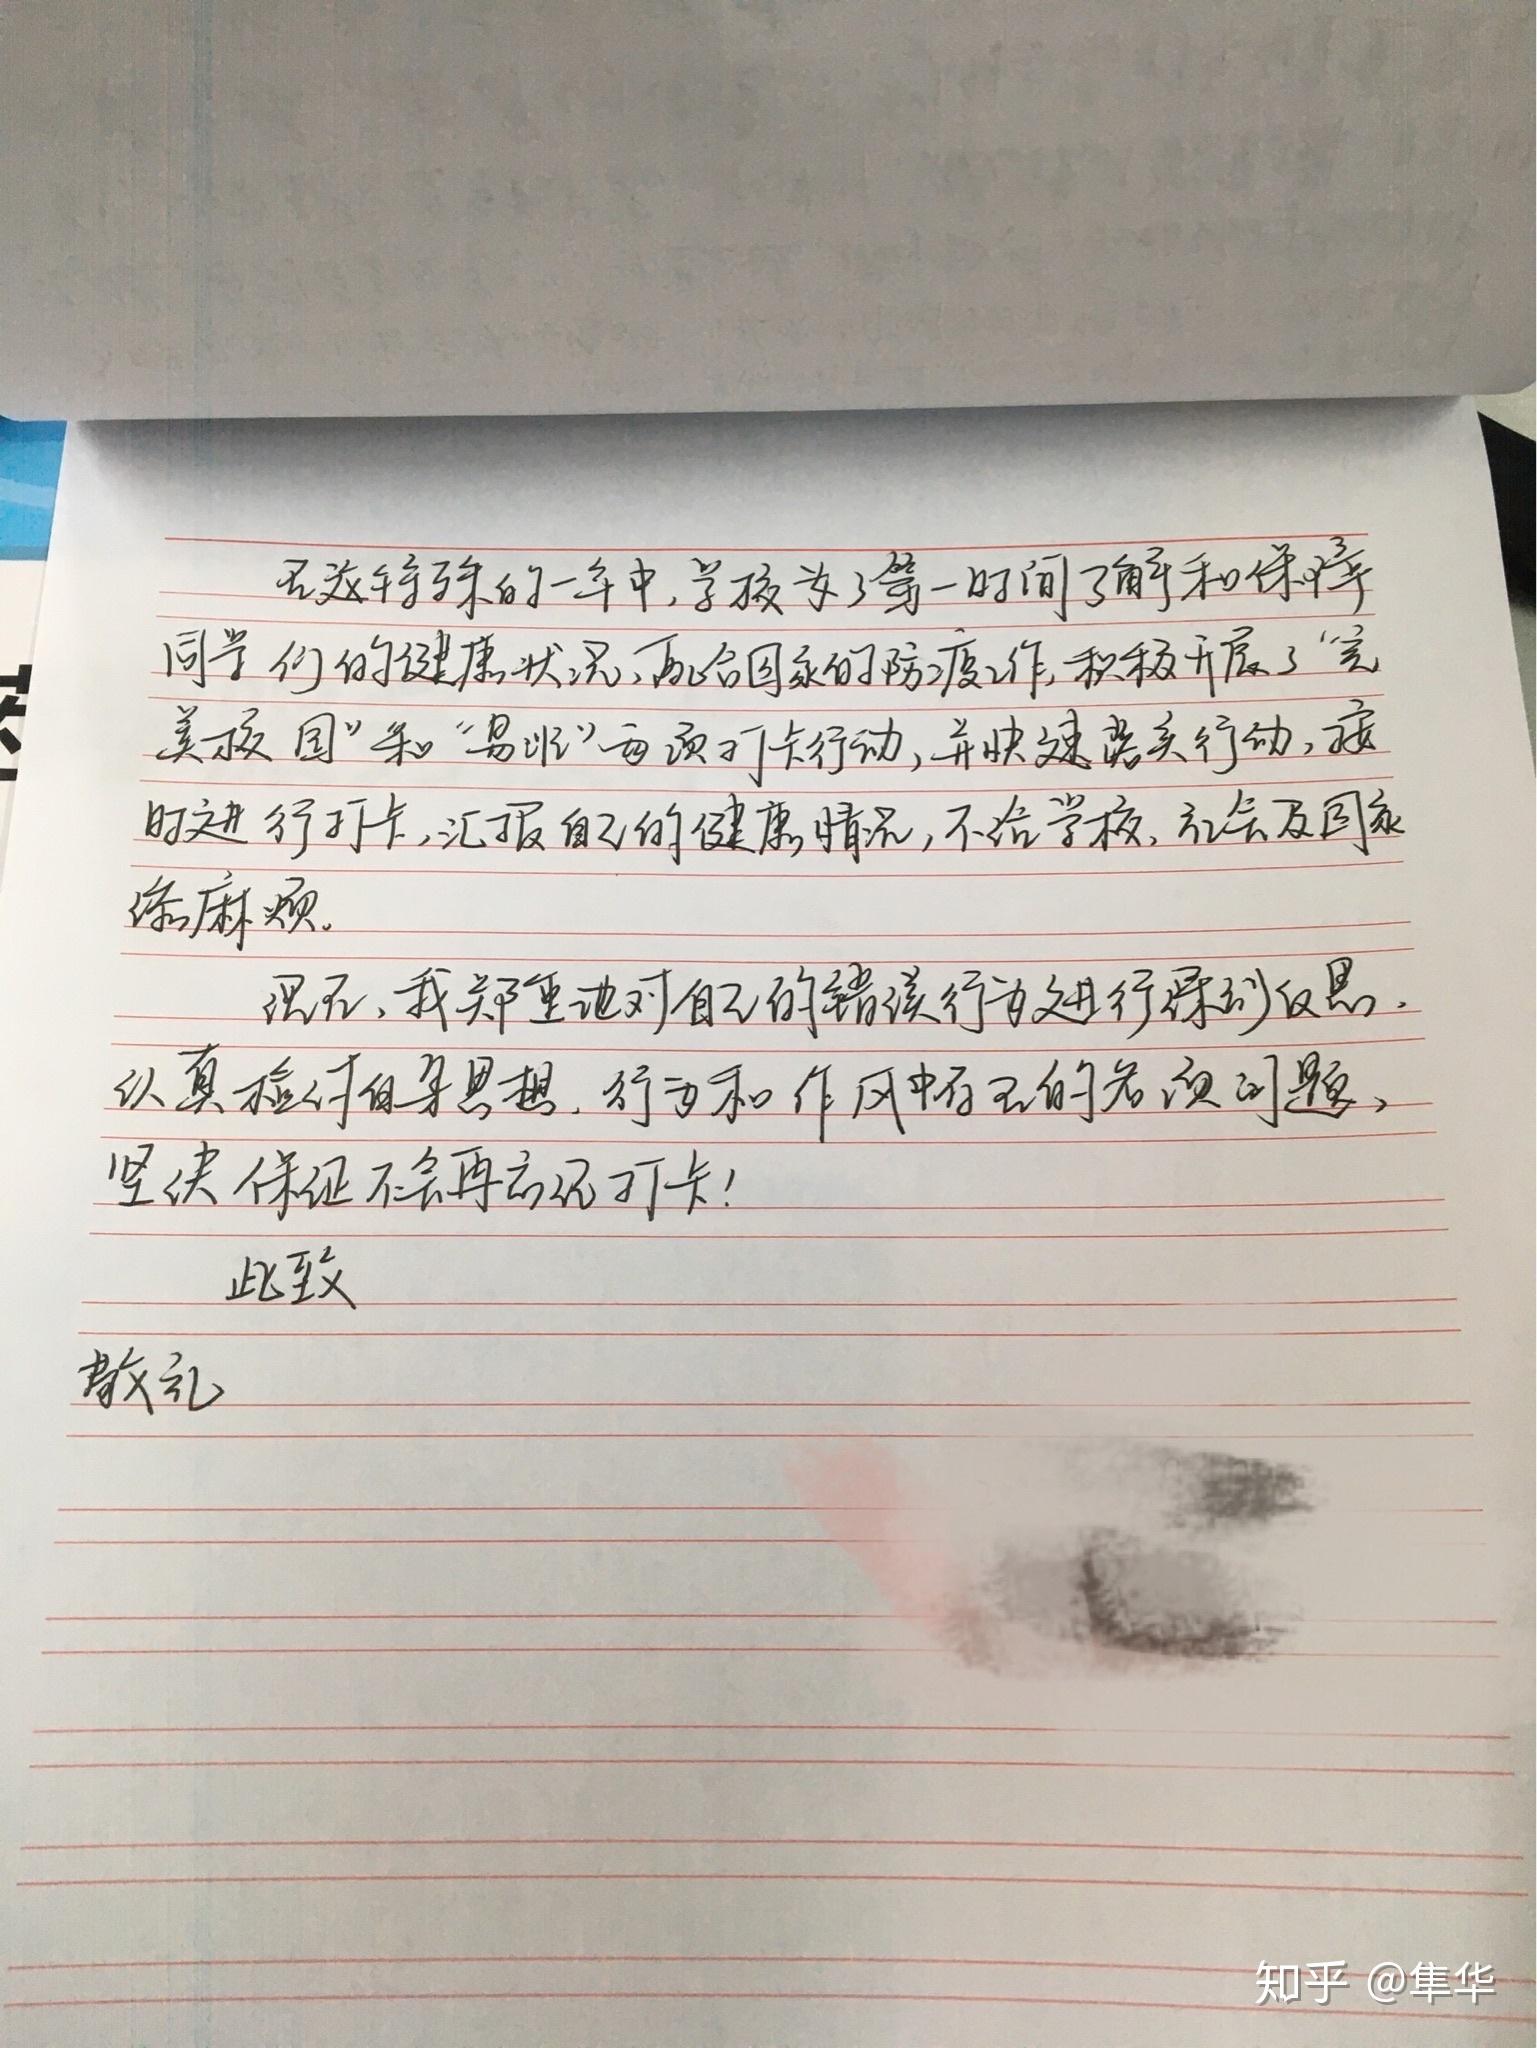 在这特殊的一年中,学校为了第一时间了解和保障
同学们的健康状况,配合国家的防疫工作,积极开展了“完
美校园”和“易班”两项打卡行动,并快速落实行动,按
时进行打卡,汇报自己的健康情况,不给学校、社会及国家
添麻烦。
现在,我郑重地对自己的错误行为进行深刻反思,
认真检讨自身思想、行为和作风中存在的各项问题,
坚决保证不会再忘记打卡!
此致
敬礼
知乎 @隼华